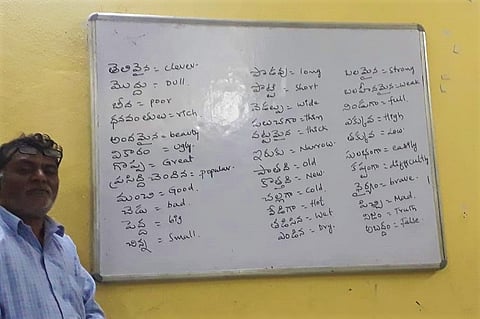 తెలివైన = clever.
మొద్దు = Dull.
బీద = poor
ధనవంతులు = rich.
అందమైన = beauty
వికారం = ugly.
గొప్ప = Great
ప్రసిద్ధి చెందిన = popular.
మంచి = Good.
చెడు = bad.
పెద్ద = big
చిన్న = Small.
పొడవు = long
పొట్టి = Short
వెడల్పు = wide
పలుచగా = thin
దట్టమైన = thick
ఇరుకు = Narrow.
పాతది = old
కొత్తది = New
చల్లగా = Cold.
వేడిగా = Hot
తడిసిన = Wet
ఎండిన = Dry.
బలమైన = Strong
బలహీనమైన = weak
నిండుగా = full.
ఎక్కువ = High
తక్కువ = Low
సులభంగా = easily
కష్టంగా = difficultly
ధైర్యం = brave.
పిచ్చి = Mad.
నిజం = Truth
అబద్ధం = False.